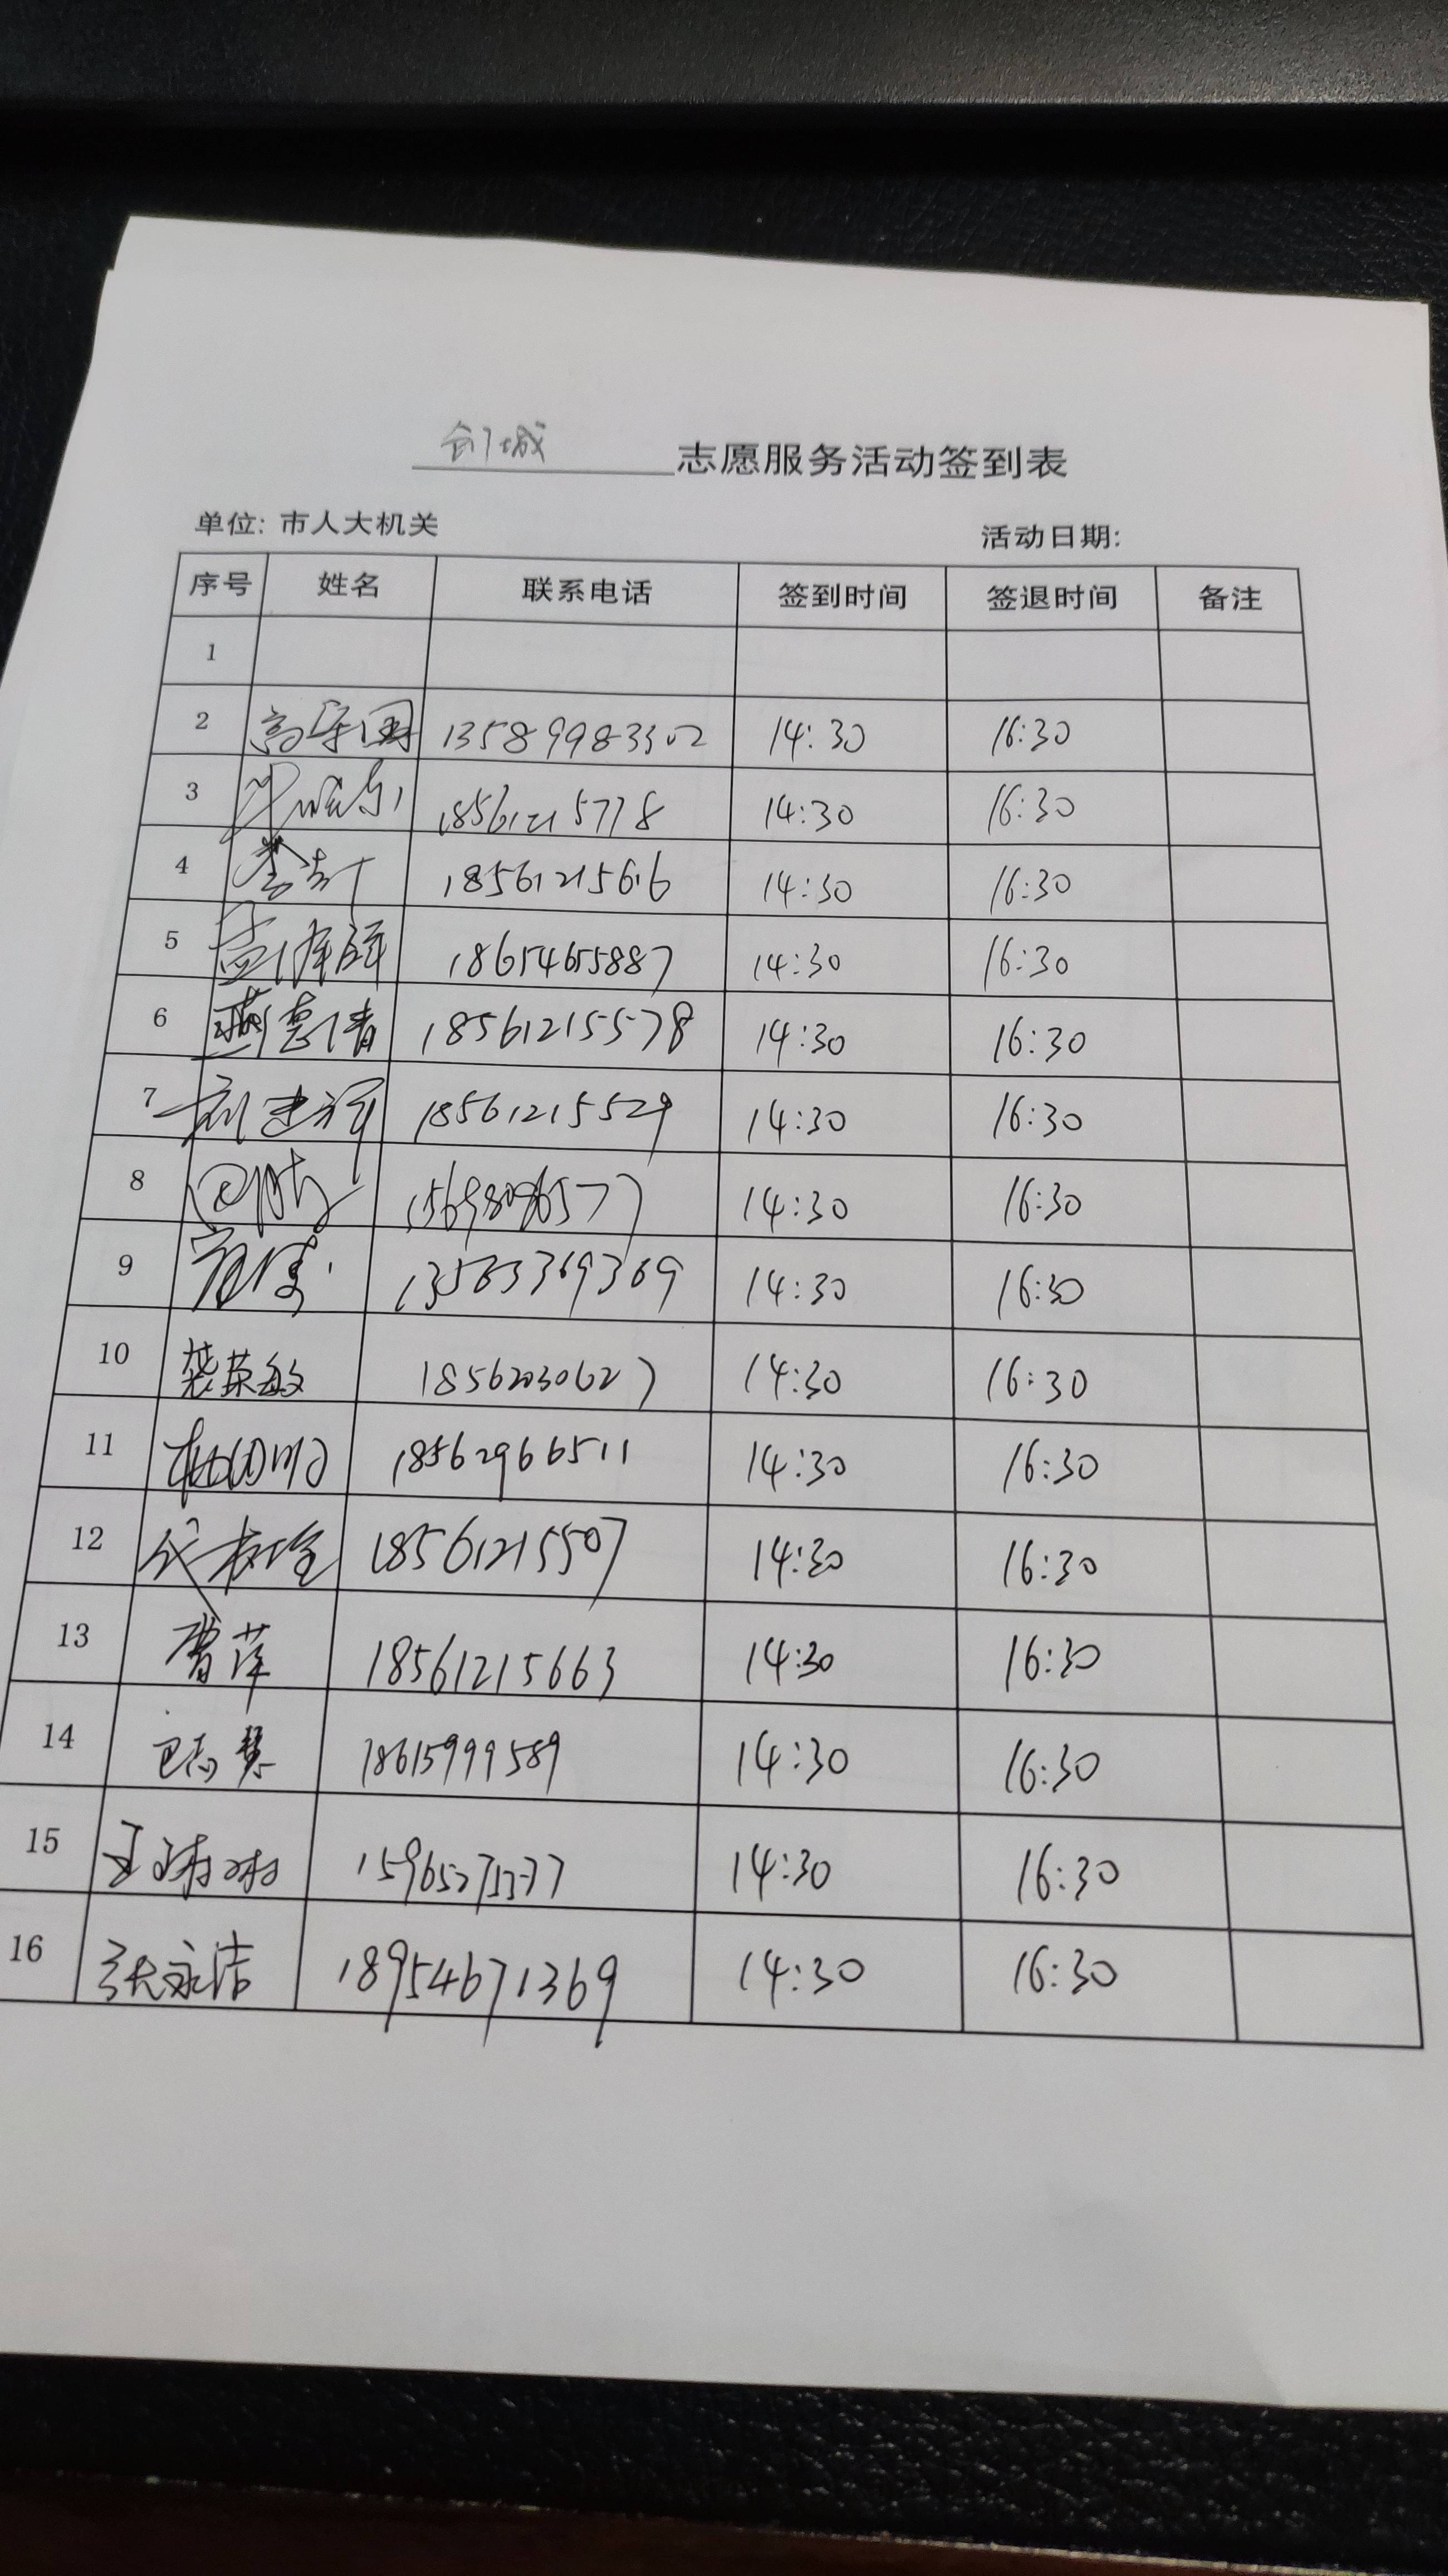 创城 志愿服务活动签到表
单位: 市人大机关 活动日期:
序号 姓名 联系电话 签到时间 签退时间 备注
1
2 13589983302 14:30 16:30
3 18561215718 14:30 16:30
4 18561215616 14:30 16:30
5 18654655887 14:30 16:30
6 燕惠清 18561215578 14:30 16:30
7 刘建辉 18561215529 14:30 16:30
8 15698096577 14:30 16:30
9 14:30 16:30
10 裴英敏 18562030627 14:30 16:30
11 18562966511 14:30 16:30
12 18561215507 14:30 16:30
13 曹萍 18561215663 14:30 16:30
14 18615999589 14:30 16:30
15 王琳琳 14:30 16:30
16 张永洁 18954671369 14:30 16:30